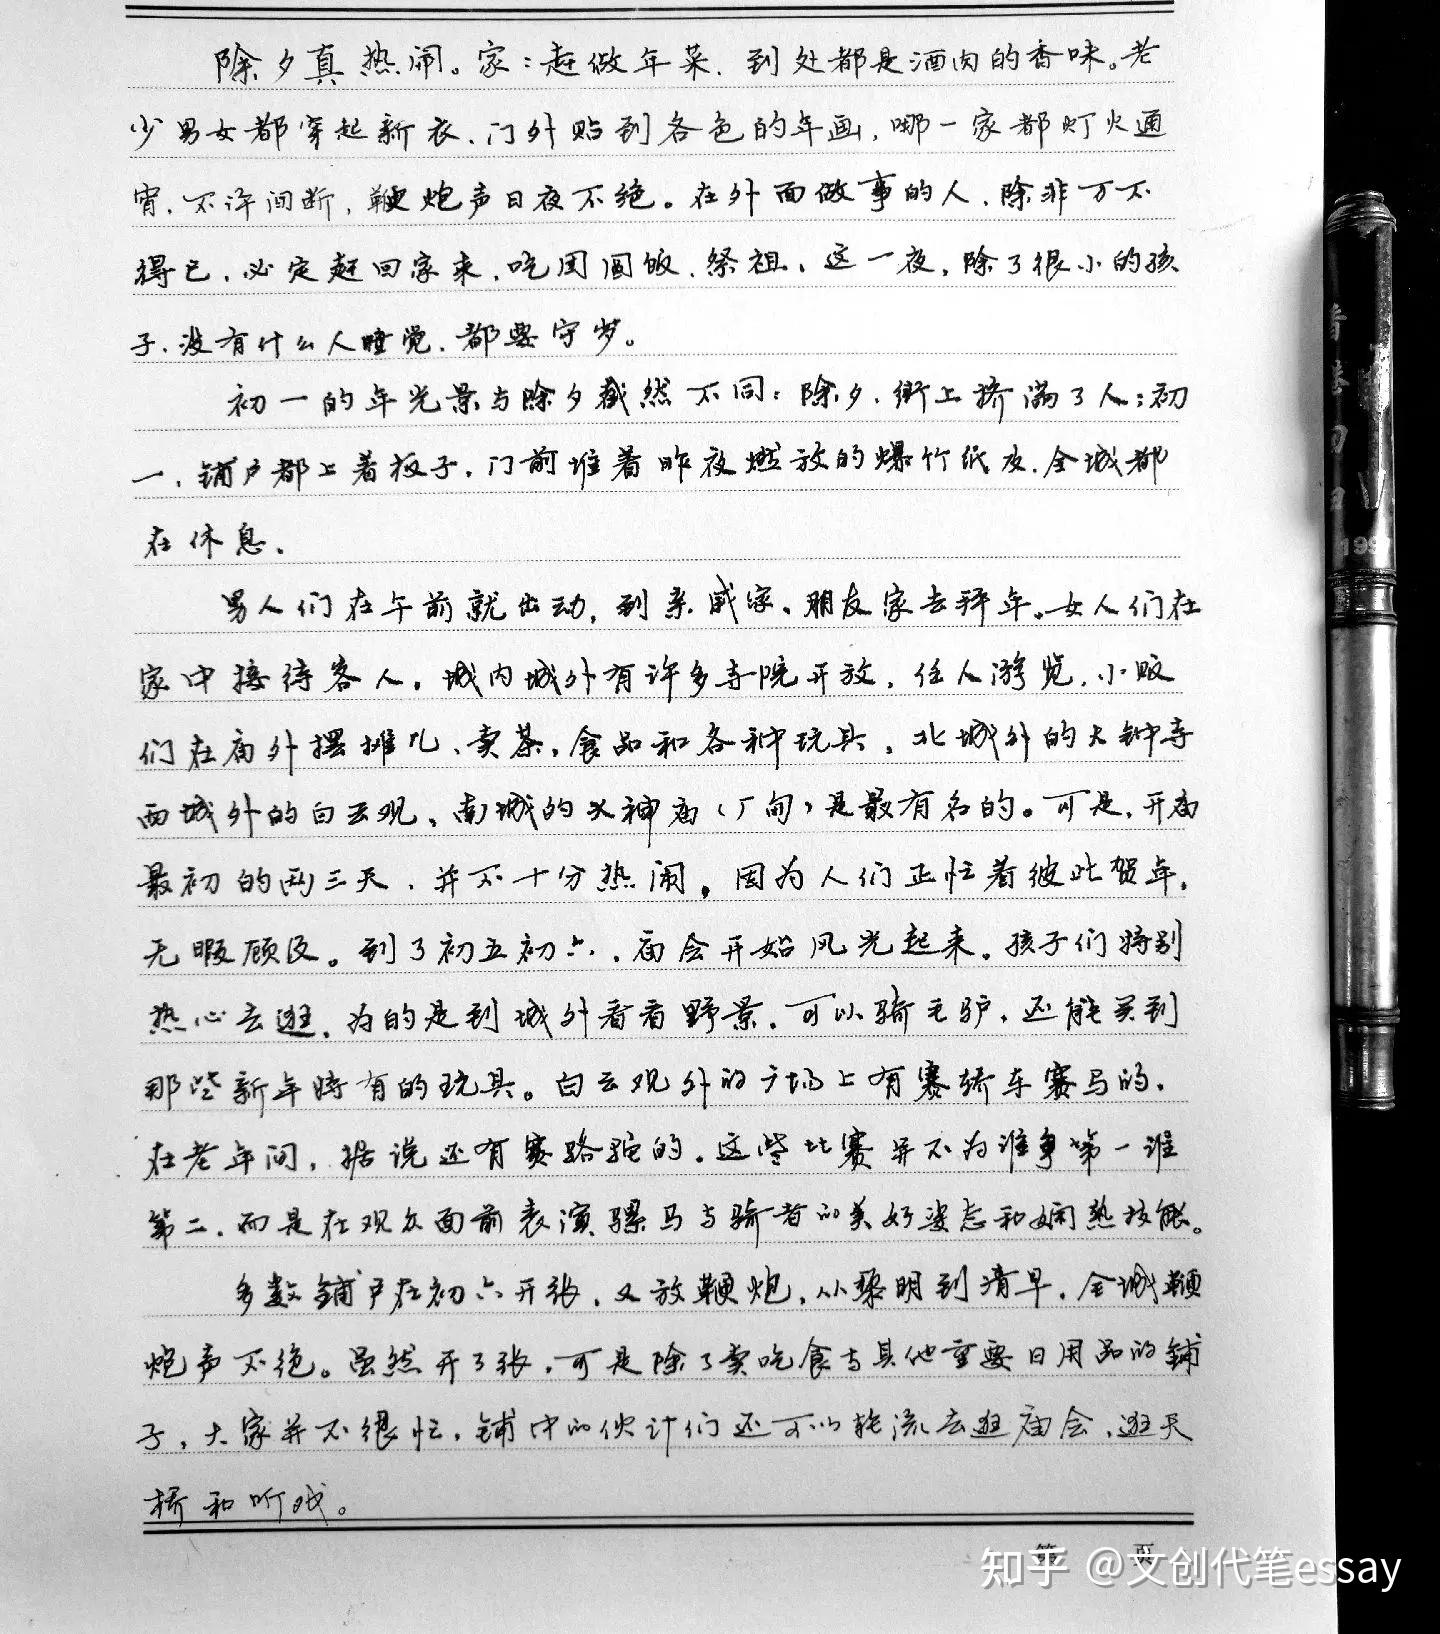 除夕真热闹。家:赶做年菜,到处都是酒肉的香味。老
少男女都穿起新衣,门外贴到各色的年画,哪一家都灯火通
宵,不许间断,鞭炮声日夜不绝。在外面做事的人,除非万不
得已,必定赶回家来,吃团圆饭,祭祖。这一夜,除了很小的孩
子,没有什么人睡觉,都要守岁。
初一的年光景与除夕截然不同:除夕,街上挤满了人;初
一,铺户都上着板子,门前堆着昨夜燃放的爆竹纸皮,全城都
在休息。
男人们在午前就出动,到亲戚家、朋友家去拜年。女人们在
家中接待客人。城内城外有许多寺院开放,任人游览,小贩
们在庙外摆摊儿、卖茶、食品和各种玩具。北城外的大钟寺
西城外的白云观、南城的火神庙(厂甸)是最有名的。可是,开庙
最初的两三天,并不十分热闹,因为人们正忙着彼此贺年,
无暇顾及。到了初五初六,庙会开始风光起来。孩子们特别
热心去逛,为的是到城外看看野景,可以骑毛驴,还能买到
那些新年特有的玩具。白云观外的广场上有赛轿车赛马的,
在老年间,据说还有赛骆驼的。这些比赛并不为谁争第一谁
第二,而是在观众面前表演骡马与骑者的美好姿态和娴熟技能。
多数铺户在初六开张,又放鞭炮,从黎明到清早,全城鞭
炮声不绝。虽然开了张,可是除了卖吃食与其他重要日用品的铺
子,大家并不很忙,铺中的伙计们还可以轮流去逛庙会、逛天
桥和听戏。
第 页
知乎 @文创代笔essay
199